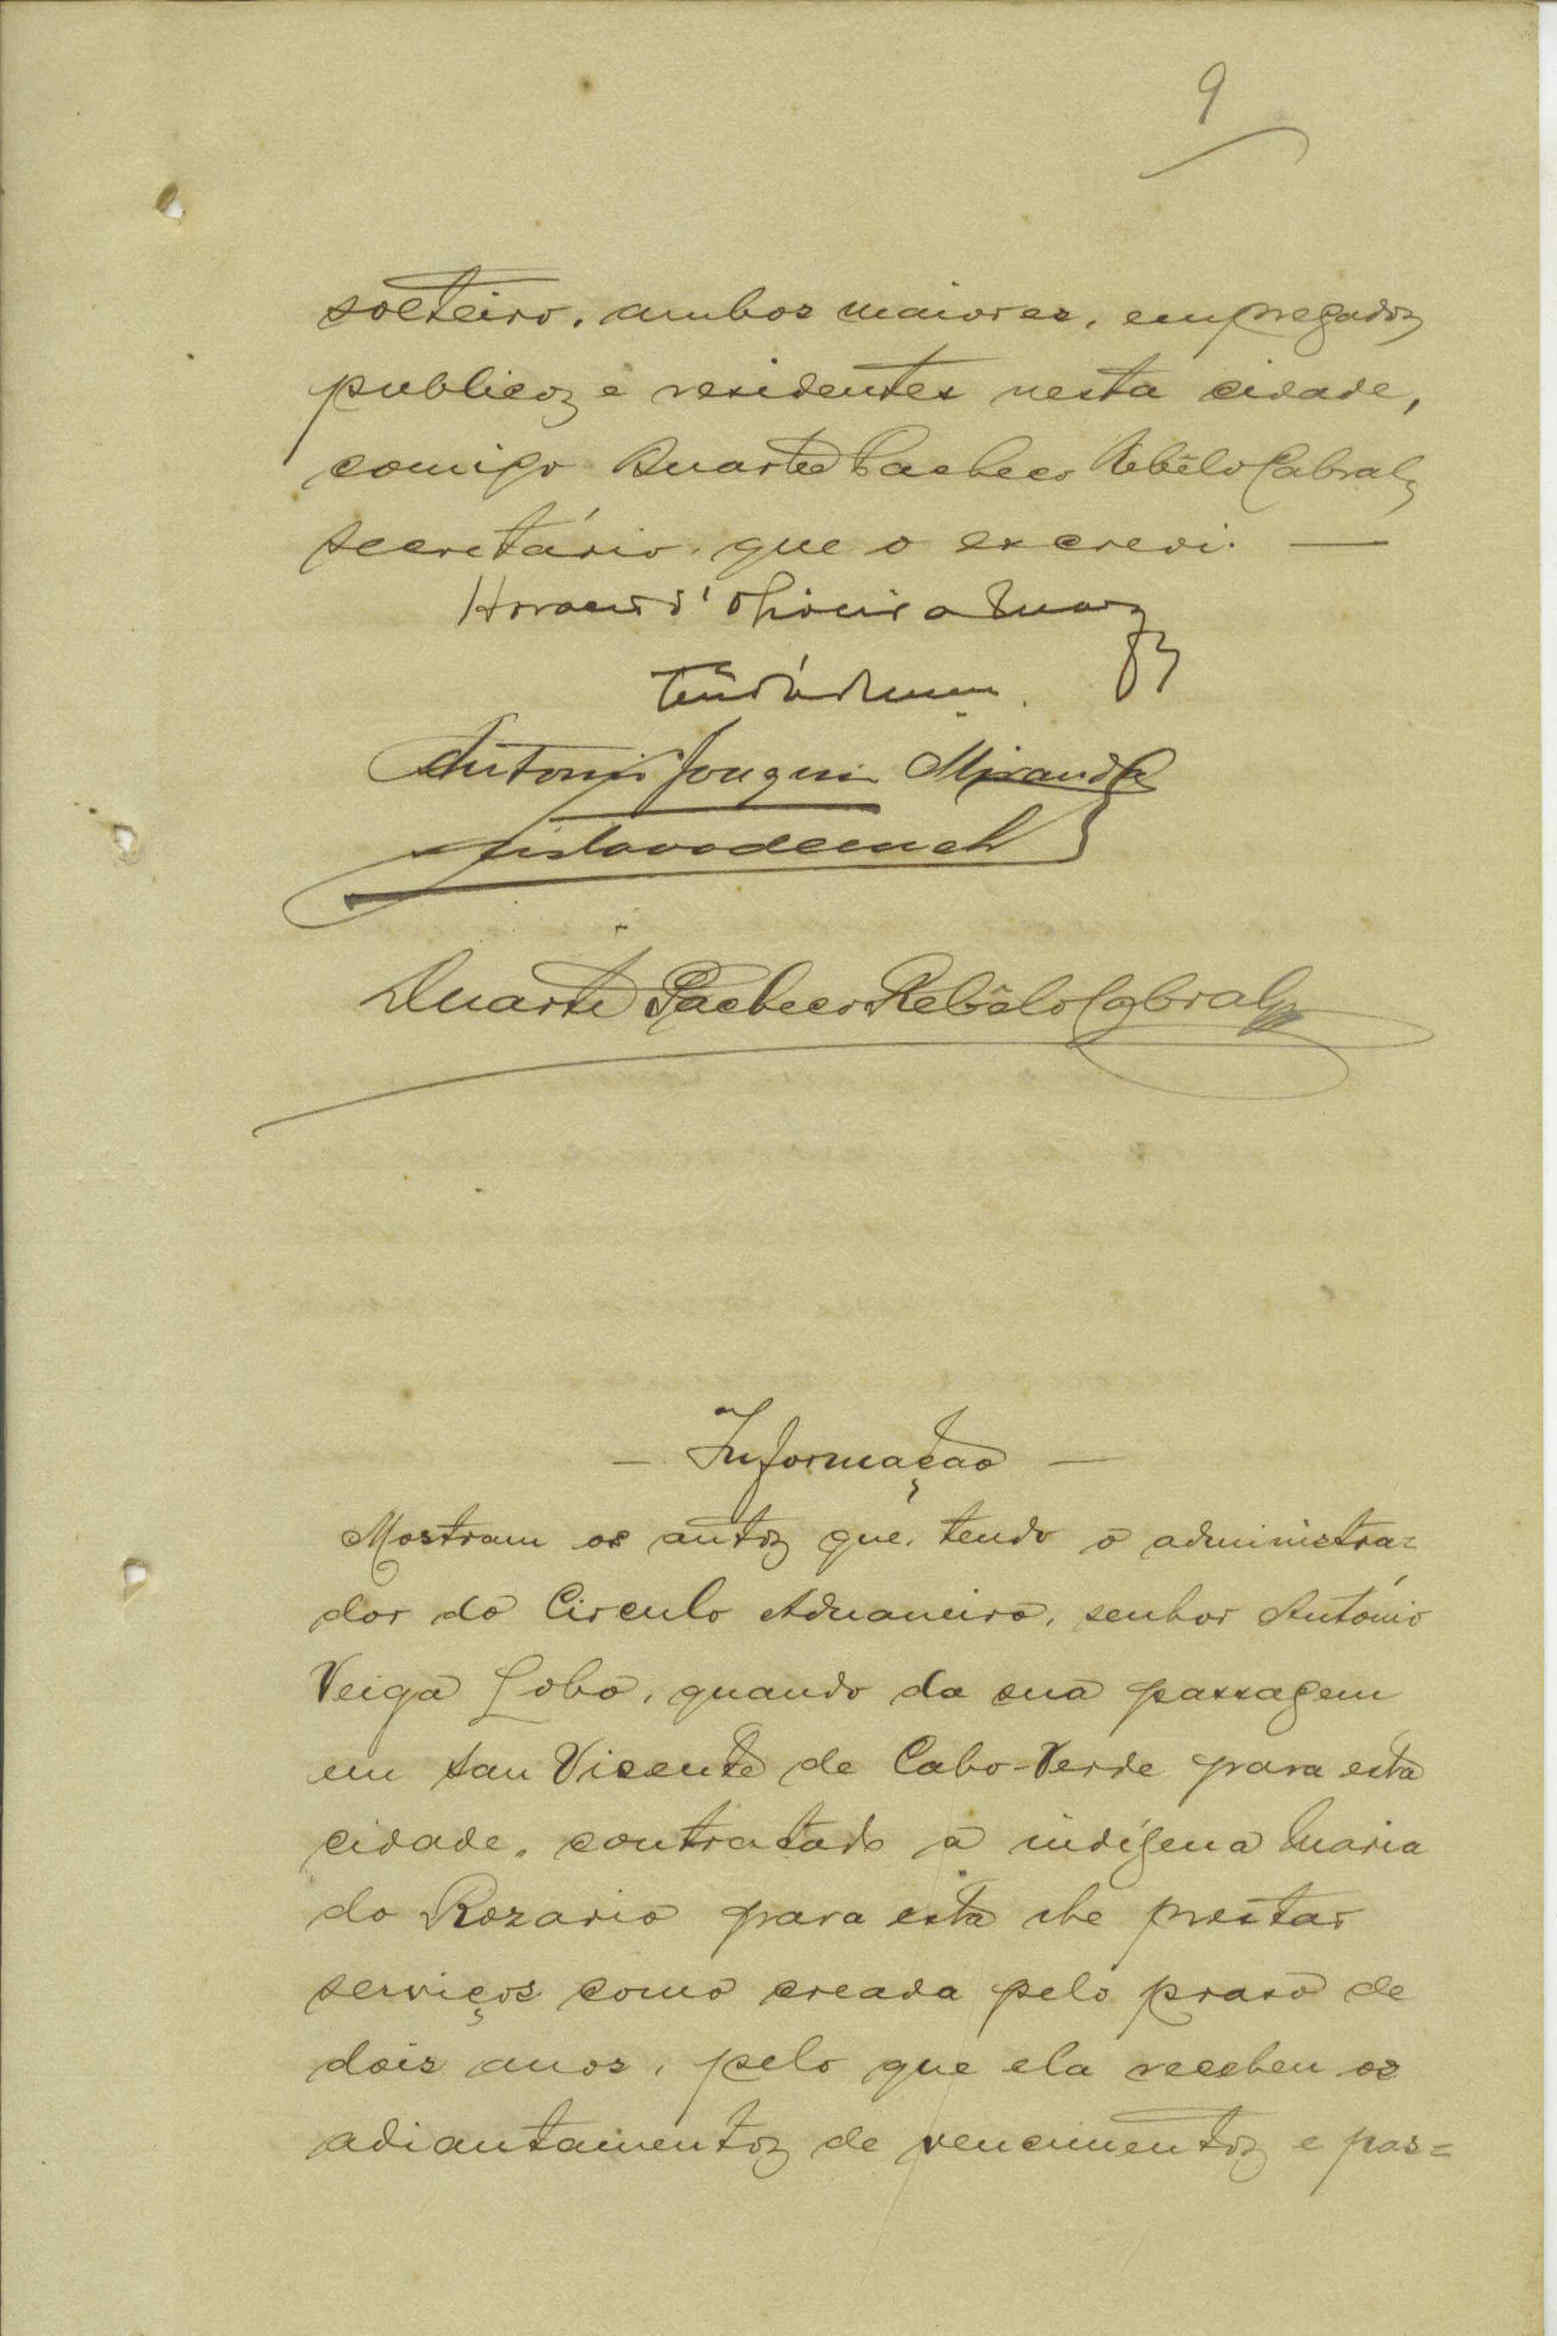 9
solteiro, ambos maiores, empregados
publicos e residentes nesta cidade,
comigo Duarte Pacheco Rebêlo Cabral,
secretário, que o escrevi. —
Horacio d'Oliveira
Antonio Joaquim Miranda
Duarte Pacheco Rebêlo Cabral
— Informação —
Mostram os autos que, tendo o administra=
dor do Circulo Aduaneiro, senhor António
Veiga Lobo, quando da sua passagem
em San Vicente de Cabo-Verde para esta
cidade, contratado a indígena Maria
do Rozario para esta lhe prestar
serviços como creada pelo praso de
dois anos, pelo que ela recebeu os
adiantamentos de vencimentos e pas=